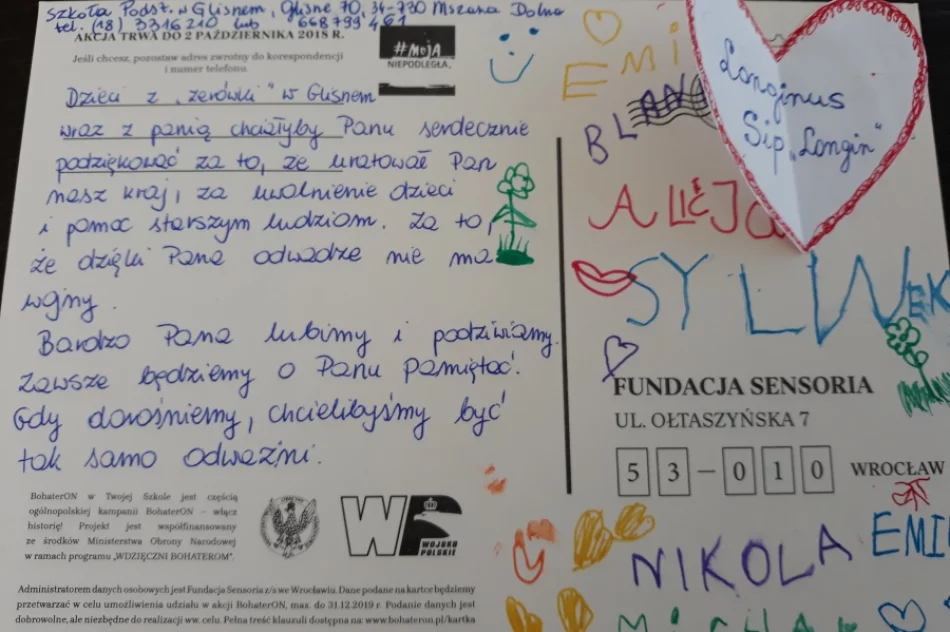 Szkoła Podst. w Glisnem, Glisne 70, 34-730 Mszana Dolna
tel. (18) 3316210 lub 668 799 461
AKCJA TRWA DO 2 PAŹDZIERNIKA 2018 R.
Jeśli chcesz, pozostaw adres zwrotny do korespondencji
i numer telefonu.
#MOJA
NIEPODLEGŁA
Dzieci z „zerówki" w Glisnem
wraz z panią chciałyby Panu serdecznie
podziękować za to, że uratował Pan
nasz kraj, za uwolnienie dzieci
i pomoc starszym ludziom. Za to,
że dzięki Pana odwadze nie ma
wojny.
Bardzo Pana lubimy i podziwiamy.
Zawsze będziemy o Panu pamiętać.
Gdy dorośniemy, chcielibyśmy być
tak samo odważni.
BohaterON w Twojej Szkole jest częścią
ogólnopolskiej kampanii BohaterON – włącz
historię! Projekt jest współfinansowany
ze środków Ministerstwa Obrony Narodowej
w ramach programu „WDZIĘCZNI BOHATEROM".
WP
WOJSKO
POLSKIE
Administratorem danych osobowych jest Fundacja Sensoria z/s we Wrocławiu. Dane podane na kartce będziemy
przetwarzać w celu umożliwienia udziału w akcji BohaterON, max. do 31.12.2019 r. Podanie danych jest
dobrowolne, ale niezbędne do realizacji ww. celu. Pełna treść klauzuli dostępna na: www.bohateron.pl/kartka
EMI
BLAN
Longinus
Sip „Longin"
ALICJA
SYLWEK
FUNDACJA SENSORIA
UL. OŁTASZYŃSKA 7
53-010 WROCŁAW
EMI
NIKOLA